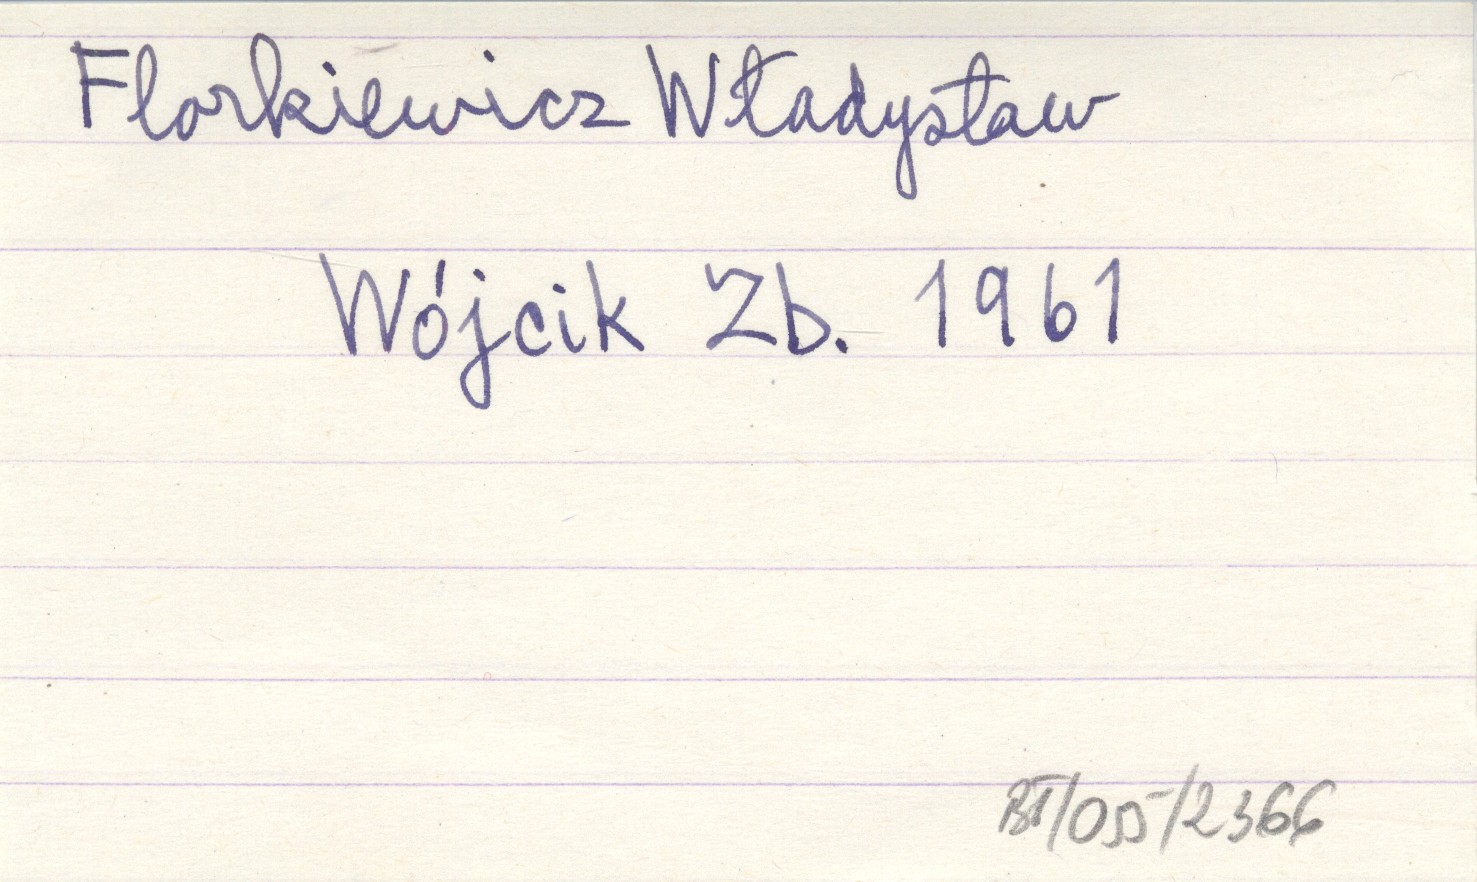 Florkiewicz Władysław
Wójcik Zb. 1961
BT/055/2366